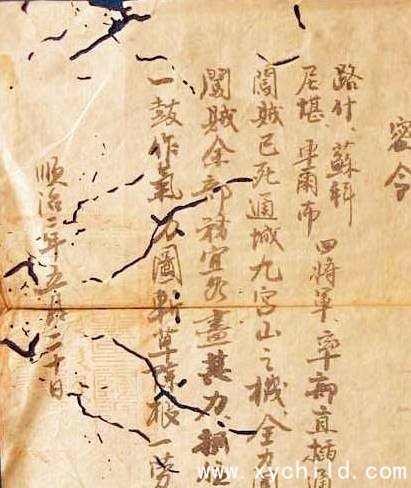 密令
路什、蘇科
尼堪、車爾布
四將軍率部直插通
闖賊已死通城九宮山之機、全力
闖賊余部務宜盡其力、
一鼓作氣力圖斬草除根一勞
順治二年五月二十日
www.xychild.com